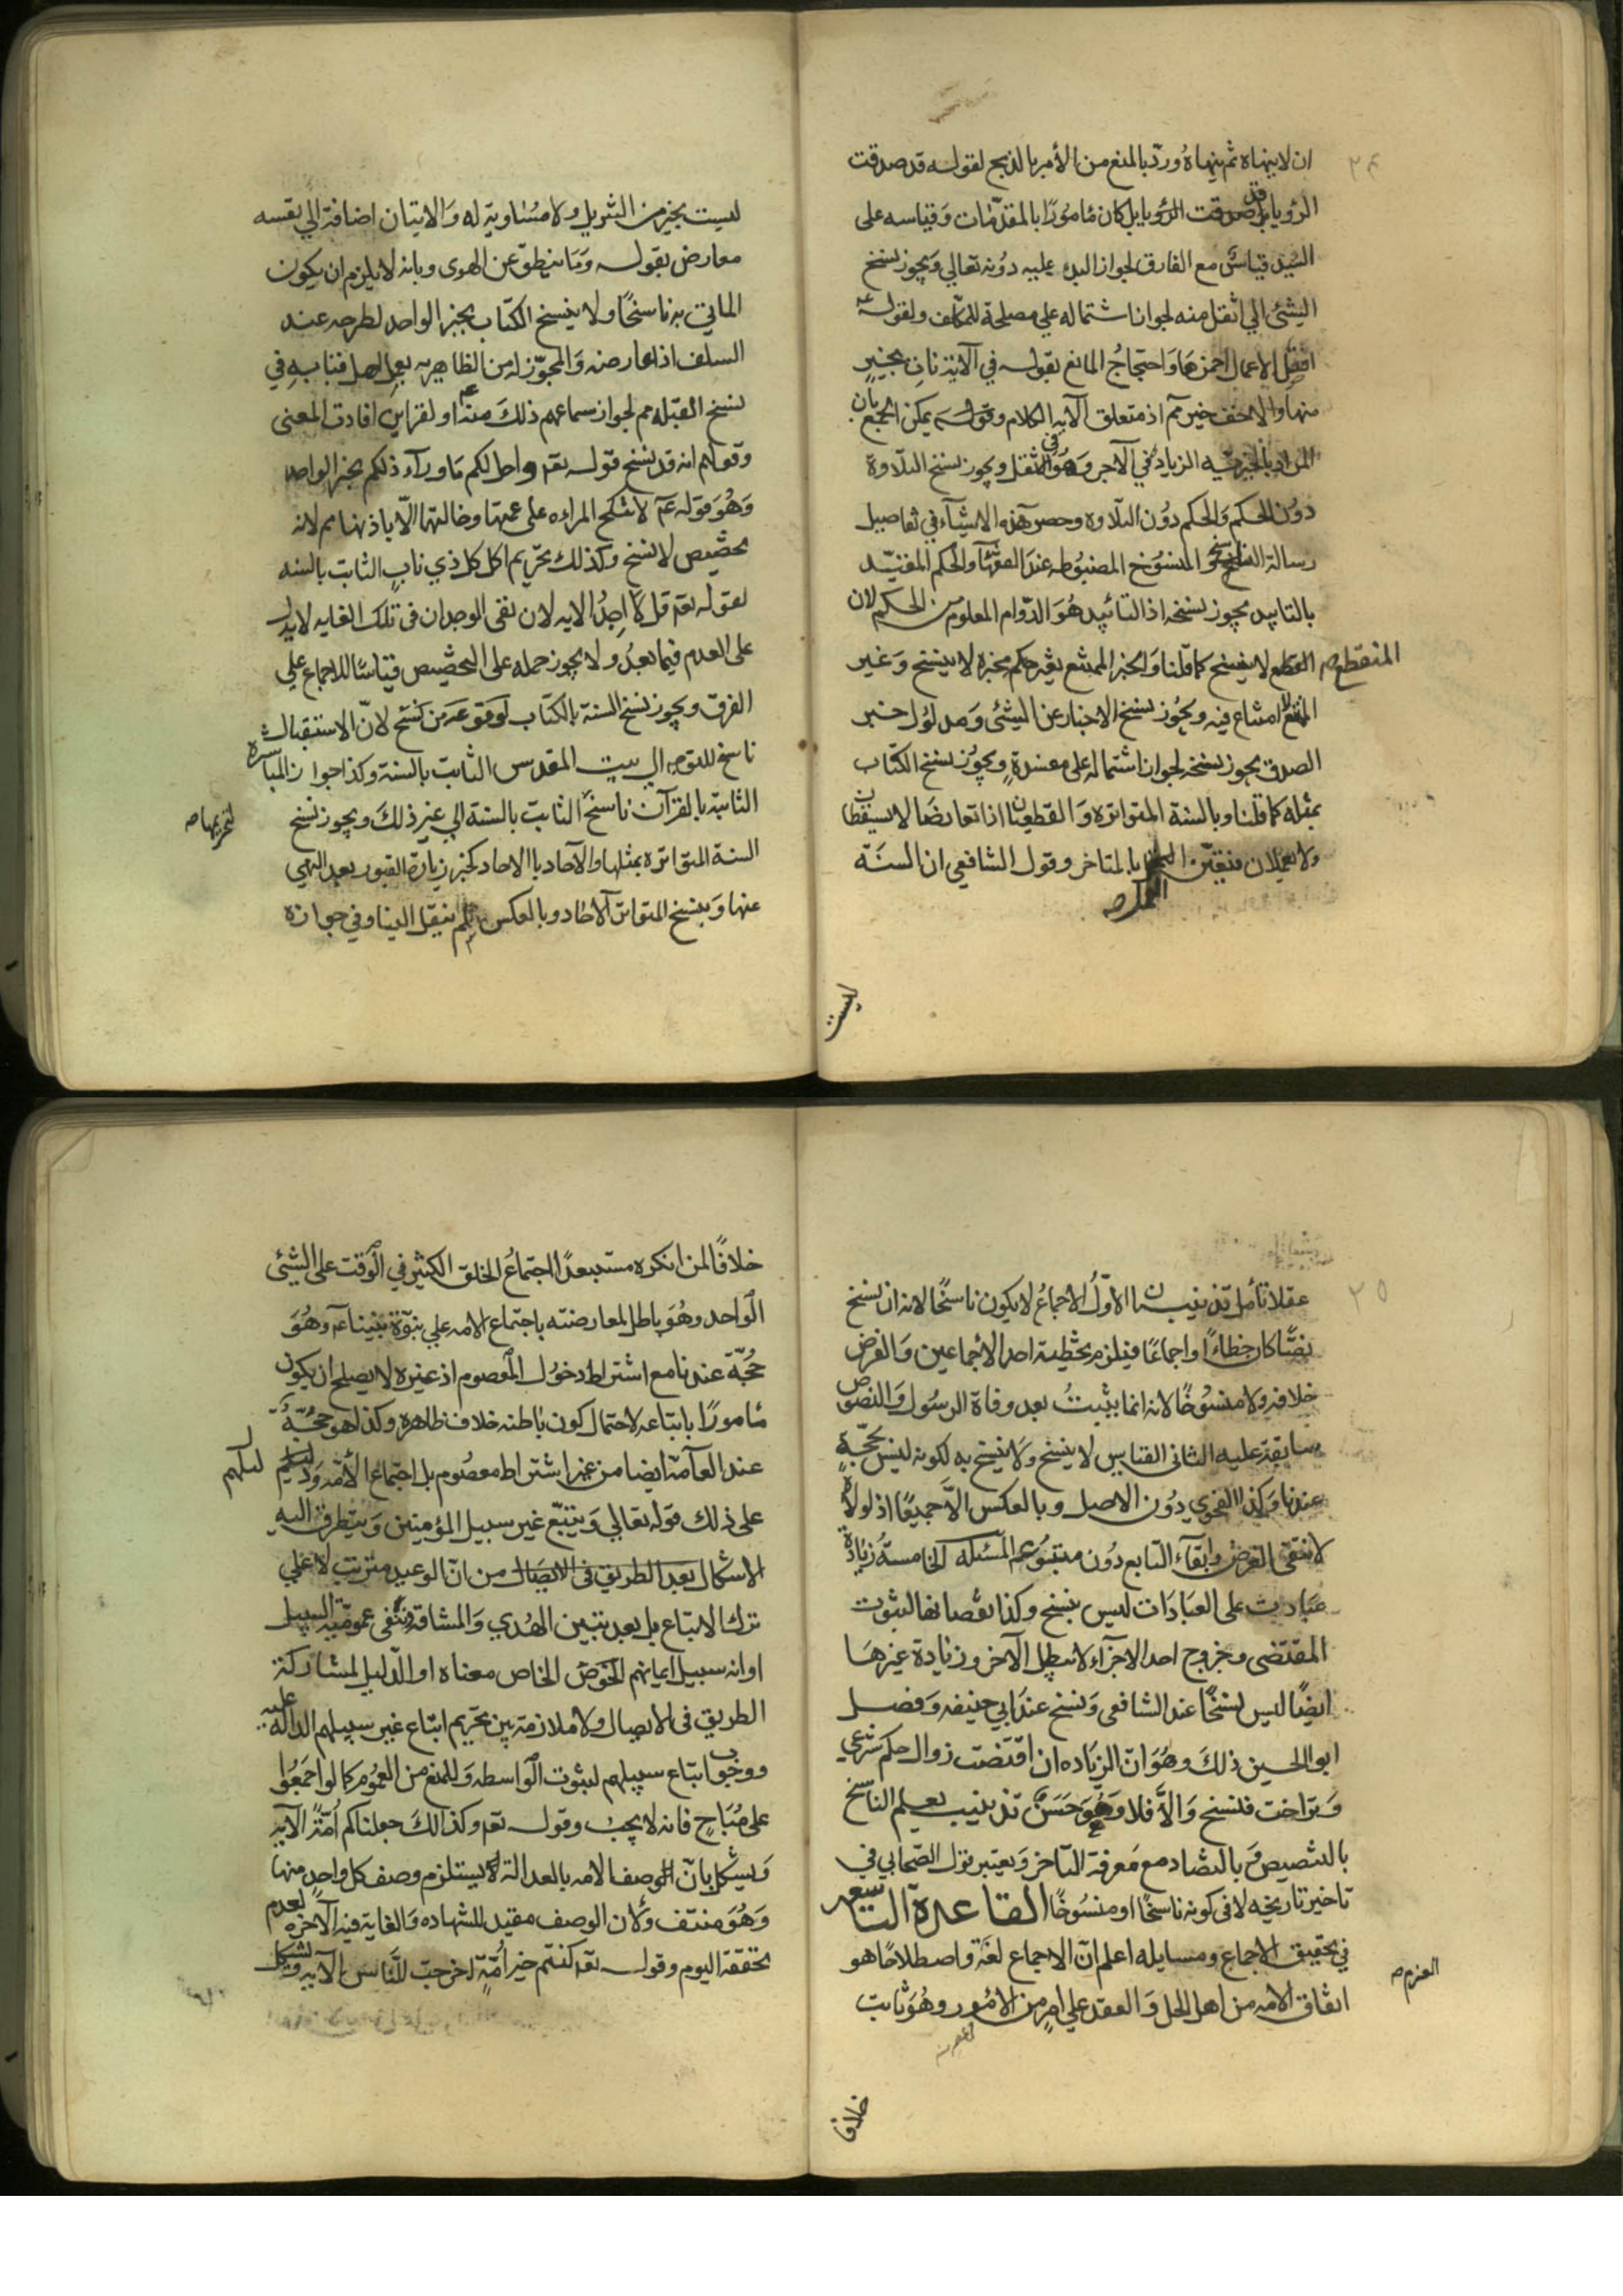 ان لا ينهاه ثم ينهاهُ وردّ بالمنع من الأمر بالذبح لقولـه قد صدقت
الرؤيا قد صدقت الرؤيا بل كان مامورًا بالمقدّمات وقياسه على
السّيد قياسٌ مع الفارق لجواز البدء عليه دُونه تعالي ويجوز نسخ
الشئ الي اثقل منه لجواز اشتماله علي مصلحة للمكلف ولقوله عم
افضل الاعمال احمزها واحتجاجُ المانع بقولـه في الآتية نات بخيرٍ
منها والاخف خير مم اذ متعلق الآيه الكلام وقولـه يمكن الجمع بان
المراد بالخيريّه الزيادة في الاجر وهُو في الثقل ويجوز نسخ التلاوة
دوُن الحكم والحكم دوُن التلاوه وحصر هذه الاشيآء في تفاصيل
رسالة الناسخ والمنسُوخ المضبُوطه عند القرّاء والحكم المقيّـد
بالتابيد يجوز نسخه اذ التائيد هُوَ الدّوام المعلوم من الحكم لان
المنقطع صـ القطع لا ينسخ كما قلنا والخبر الممتنع تغير حكم مخبره لا ينسخ وَغير
الممتنع لا امتناع فيه ويجُوز نسخ الاخبار عن الشئى وَمدلوُل خبر
الصدق يجوز نسخه لجواز اشتماله على مفسدةٍ ويجوُز نسخ الكتاب
بمثله كما قلنا وبالسنة المتواتره وَالقطعيان اذا تعارضَا لا يسقطان
ولا يعملان فتعيّن العمل صـ بالمتاخر وقول الشافعي ان السنّة
ليست
ليست بخير من التنزيل ولا مسُاوية له وَالاتيان اضافة الي نفسه
معارض بقولـه وَمَا ينطق عن الهوى وبانه لا يلزم ان يكون
الماتي به ناسخًا ولا ينسخ الكتاب بخبر الواحد لطرحه عند
السلف اذا عارضه وَالمجوّز له من الظاهريه بعمل اهل قبا به في
نسخ القبله مم لجواز سماعهم ذلكَ منه عم او لقراين افادت المعنى
وقولهم انه قد نسخ قولـه تعـ واحل لكم مَا ورآء ذلكم بخبر الواحد
وَهُوَ قوله عم لا تنكح المراءه على عمتها وخالتها الّا باذنها مم لانه
تخصيص لا نسخ وكذلك تحريم اكل كل ذي نابٍ الثابت بالسنه
لقوله تعـ قل لا اجدُ الايه لان نفى الوجدان فى تلك الغايه لا يدل
على العدم فيما بعدُ ولا يجوز حمله على التخصيص قياسًا للاجماع علي
الفرق ويجوز نسخ السنة بالكتاب لوقوعه من نسخ لانّ الاستقبال
ناسخ للتوجه الي بيت المقدس الثابت بالسنة وكذا جواز المباشرة
الثابتة بالقرآن ناسخٌ لتحريمها صـ الثابت بالسنة الي غير ذلكَ ويجوز نسخ
السنة المتواتره بمثلها والآحاد بالاحاد كخبر زيارة القبور بعد النهي
عنها وَينسخ المتواتر الآحاد وبالعكس لم ينقل الينا وفي جوازه
٢٥
عقلا تأمل تذنيبـان الاوّلُ الاجماعُ لا يكون ناسخًا لانه ان نسخ
نصًّا كان خطاءً او اجماعًا فيلزم تخطية احد الاجماعين وَالفرض
خلافه ولا منسُوخًا لانه انما يثبتُ بعد وفاة الرسُول وَالنصُوص
سابقة عليه الثانى القياس لا ينسخ ولا ينسخ به لكونه ليس بحجّةٍ
عندنا وَكذا الفحوي دُون الاصل وبالعكس الّا جميعًا اذ لولاه
لانتفى الغرض وابقآء التابع دُون متبُوعه المسُله الخامسة زيادة
عبادت على العبَادَات ليس بنسخ وكذا نقصانها لثبوت
المقتضى وخروج احد الاجزآء لا يبطل الآخر وزيادة غيرها
ايضًا ليس نسخًا عند الشافعى وَنسخ عند ابي حنيفه وَفصـل
ابو الحسين ذلكَ وهُوَ انّ الزيَاده ان اقتضت زوال حكم شرعي
وَتراخت فنسخ وَالّا فلا وَهُوَ حَسَنٌ تذنيب يعلم الناسخ
بالتنصيص وَبالتضاد مع مَعرفة التآخر وَيعتبر قول الصّحابي في
تاخير تاريخه لا فى كونه ناسخًا او منسُوخًا القاعدة التاسعة
في تحقيق الاجماع ومسايله اعلم انّ الاجماع لغَة العزم صـ واصطلاحًا هو
اتفاق الامه من اهل الحل وَالعقد علي امرٍ من الامُور وهُوَ ثابت
خلافا
خلافًا لمن انكره مستبعدًا اجتماعُ الخلق الكثير في الوَقت على الشئى
الوَاحد وهُوَ باطل لمعارضته باجتماع الامه علي نبوّة نبيّنا عم وهُوَ
حُجّة عندنا مع اشتراط دخوُل المعصوم اذ غيره لا يصلح ان يكون
مامورًا باتباعه لاحتمال كون باطنه خلاف ظاهره وكذا هو حجّةٌ
عند العآمّة ايضا من غير اشتراط معصُوم بل اجتماع الأمّه وَدليلهم
على ذلك قوله تعالي وَيتبّع غير سبيل المؤمنين وَيتطرق اليه
الاشكال بعد الطريق فى الايصَال من انّ الوعيد مترتب لا علي
ترك الاتباع بل بعد تبين الهُدي وَالمشاقة ونفى عموميّة السبيل
او انه سبيل ايمانهم لخوَض الخاص معناه او الدّليل لمشاركة
الطريق فى الايصال ولا ملازمة بين تحريم اتباع غير سبيلهم الدالة عليه
ووجُوب اتباع سبيلهم لثبوت الوَاسطه وَللمنع من العمُوم كما لو اجمَعُوا
على مُبَاحٍ فانه لا يجبُ وقولـه تعـ وكذالكَ جعلناكم اُمّةً الآيه
وَيشكل بانّ الوصف الامه بالعدالة لا يستلزم وصف كل واحدٍ منها
وَهُوَ منتف ولان الوصف مقيد للشهاده وَالغاية فيه الآخره لعدم
تحققه اليوم وقولـه تعـ كنتم خير اُمّةٍ اخرجت للنّاس الآيه ويشكل